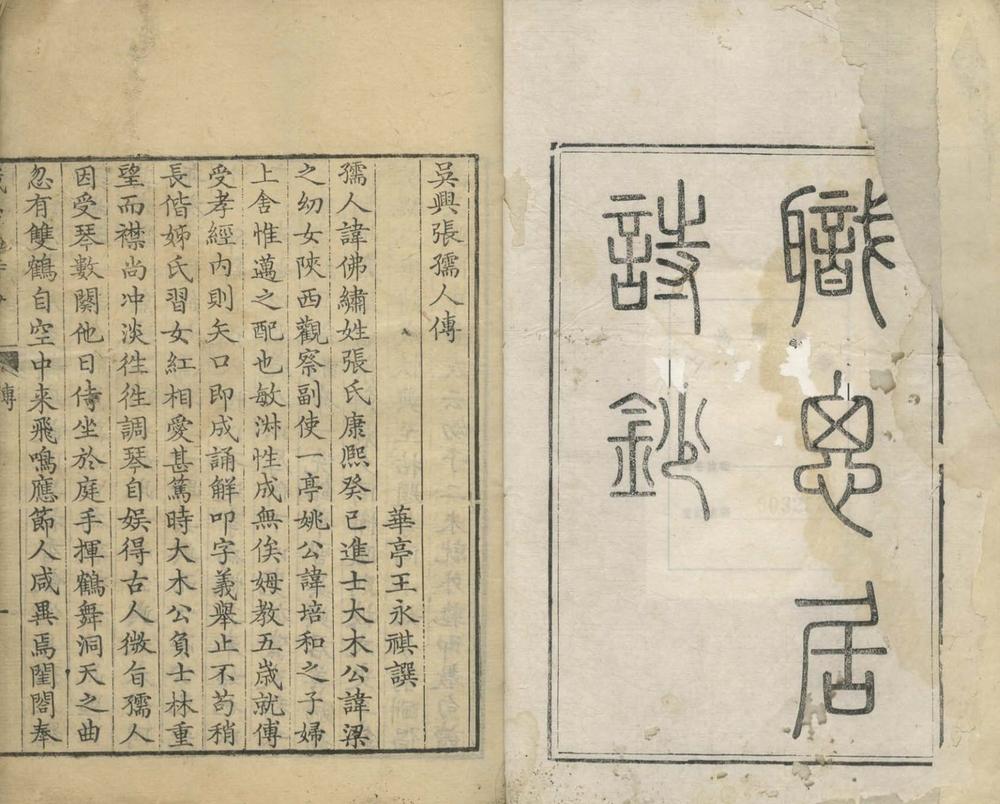 職思居
詩鈔
吳興張孺人傳
華亭王永祺譔
孺人諱佛繡姓張氏康熈癸已進士大木公諱梁
之幼女陝西觀察副使一亭姚公諱培和之子婦
上舍惟邁之配也敏淑性成無俟姆教五歲就傅
受孝經內則矢口即成誦解叩字義舉止不苟稍
長偕姊氏習女紅相愛甚篤時大木公負士林重
望而襟尚冲淡徃徃調琴自娛得古人微旨孺人
因受琴數闋他日侍坐於庭手揮鶴舞洞天之曲
忽有雙鶴自空中来飛鳴應節人咸異焉閨閤奉
傳
一